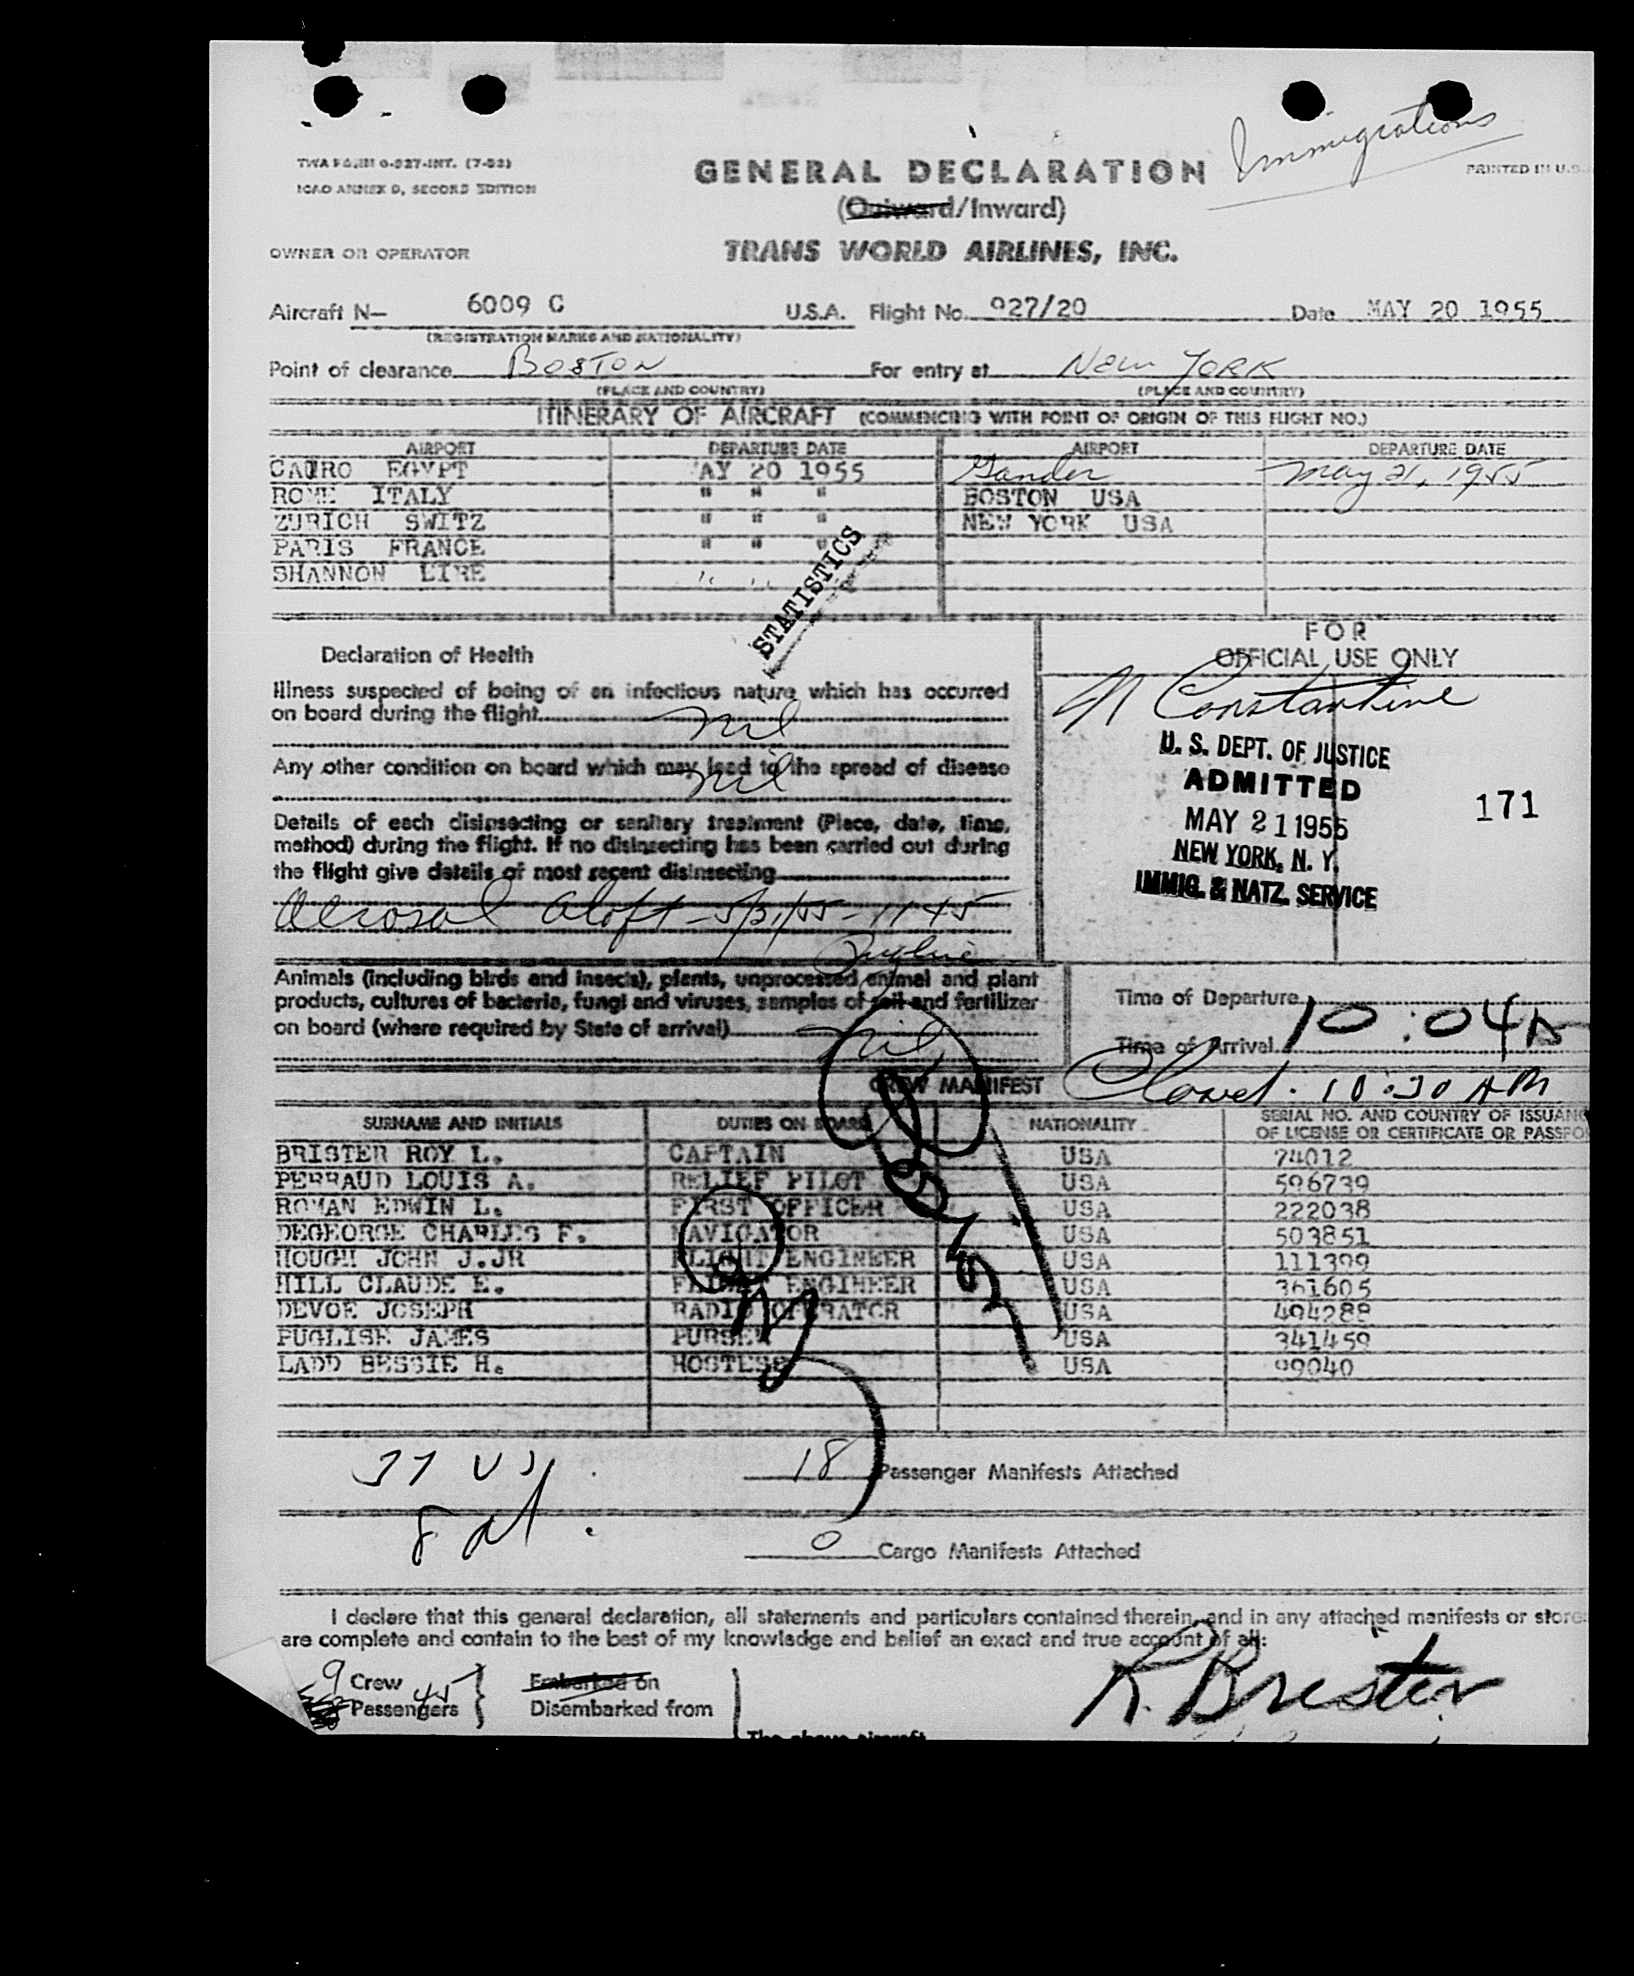 Immigrations
TWA FORM O-927-INT. (7-53)
ICAO ANNEX 9, SECOND EDITION
GENERAL DECLARATION
PRINTED IN U.S.
(Outward/Inward)
OWNER OR OPERATOR
TRANS WORLD AIRLINES, INC.
Aircraft N— 6009 C U.S.A. Flight No. 927/20 Date MAY 20 1955
(REGISTRATION MARKS AND NATIONALITY)
Point of clearance BOSTON For entry at New YORK
(PLACE AND COUNTRY) (PLACE AND COUNTRY)
ITINERARY OF AIRCRAFT (COMMENCING WITH POINT OF ORIGIN OF THIS FLIGHT NO.)
AIRPORT DEPARTURE DATE AIRPORT DEPARTURE DATE
CAIRO EGYPT AY 20 1955 Gander May 21, 1955
ROME ITALY " " " BOSTON USA
ZURICH SWITZ " " " NEW YORK USA
PARIS FRANCE " " "
SHANNON EIRE " "
STATISTICS
FOR
OFFICIAL USE ONLY
Declaration of Health
Illness suspected of being of an infectious nature which has occurred
on board during the flight nil
Any other condition on board which may lead to the spread of disease
nil
Details of each disinsecting or sanitary treatment (Place, date, time,
method) during the flight. If no disinsecting has been carried out during
the flight give details of most recent disinsecting
Aerosol aloft - 5/21/55 - 1145
Puglise
N Constantine
U. S. DEPT. OF JUSTICE
ADMITTED
MAY 21 1955
NEW YORK, N. Y.
IMMIG. & NATZ. SERVICE
171
Animals (including birds and insects), plants, unprocessed animal and plant
products, cultures of bacteria, fungi and viruses, samples of soil and fertilizer
on board (where required by State of arrival) nil
Time of Departure
Time of Arrival 10:04A
Closed. 10:30 AM
CREW MANIFEST
SURNAME AND INITIALS DUTIES ON BOARD NATIONALITY SERIAL NO. AND COUNTRY OF ISSUANC
OF LICENSE OR CERTIFICATE OR PASSPO
BRISTER ROY L. CAPTAIN USA 74012
PERRAUD LOUIS A. RELIEF PILOT USA 596739
ROMAN EDWIN L. FIRST OFFICER USA 222038
DEGEORGE CHARLES F. NAVIGATOR USA 503851
HOUGH JOHN J.JR FLIGHT ENGINEER USA 111399
HILL CLAUDE E. FLIGHT ENGINEER USA 361605
DEVOE JOSEPH RADIO OPERATOR USA 494288
PUGLISE JAMES PURSER USA 341459
LADD BESSIE H. HOSTESS USA 99040
37 US.
8 al.
18 Passenger Manifests Attached
0 Cargo Manifests Attached
I declare that this general declaration, all statements and particulars contained therein, and in any attached manifests or store
are complete and contain to the best of my knowledge and belief an exact and true account of all:
9 Crew Embarked on
Passengers 45 Disembarked from
R. Brister
The above aircraft